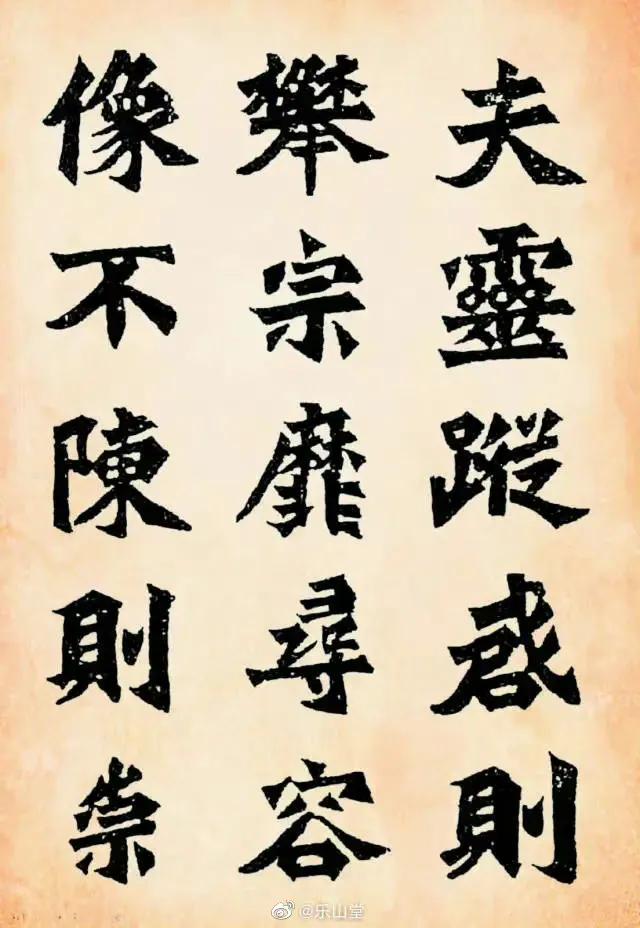 夫靈蹤啓則
攀宗靡尋容
像不陳則崇
@乐山堂